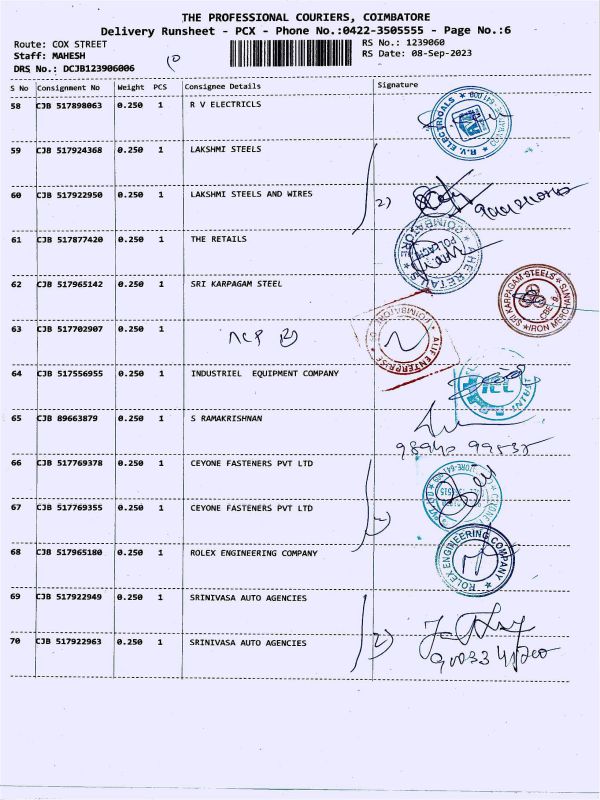 THE PROFESSIONAL COURIERS, COIMBATORE
Delivery Runsheet - PCX - Phone No.:0422-3505555 - Page No.:6
Route: COX STREET
RS No.: 1239060
Staff: MAHESH
RS Date: 08-Sep-2023
DRS No.: DCJB123906006
S No Consignment No Weight PCS Consignee Details Signature
58 CJB 517898063 0.250 1 R V ELECTRICLS
R.V. ELECTRICALS
59 CJB 517924368 0.250 1 LAKSHMI STEELS
60 CJB 517922950 0.250 1 LAKSHMI STEELS AND WIRES
2)
61 CJB 517877420 0.250 1 THE RETAILS
THE RETAILS COIMBATORE
62 CJB 517965142 0.250 1 SRI KARPAGAM STEEL
KARPAGAM STEELS IRON MERCHANTS
63 CJB 517702907 0.250 1
ALIF ENTERPRISE COIMBATORE
64 CJB 517556955 0.250 1 INDUSTRIEL EQUIPMENT COMPANY
65 CJB 89663879 0.250 1 S RAMAKRISHNAN
66 CJB 517769378 0.250 1 CEYONE FASTENERS PVT LTD
67 CJB 517769355 0.250 1 CEYONE FASTENERS PVT LTD
68 CJB 517965180 0.250 1 ROLEX ENGINEERING COMPANY
ROLEX ENGINEERING COMPANY
69 CJB 517922949 0.250 1 SRINIVASA AUTO AGENCIES
70 CJB 517922963 0.250 1 SRINIVASA AUTO AGENCIES
2)